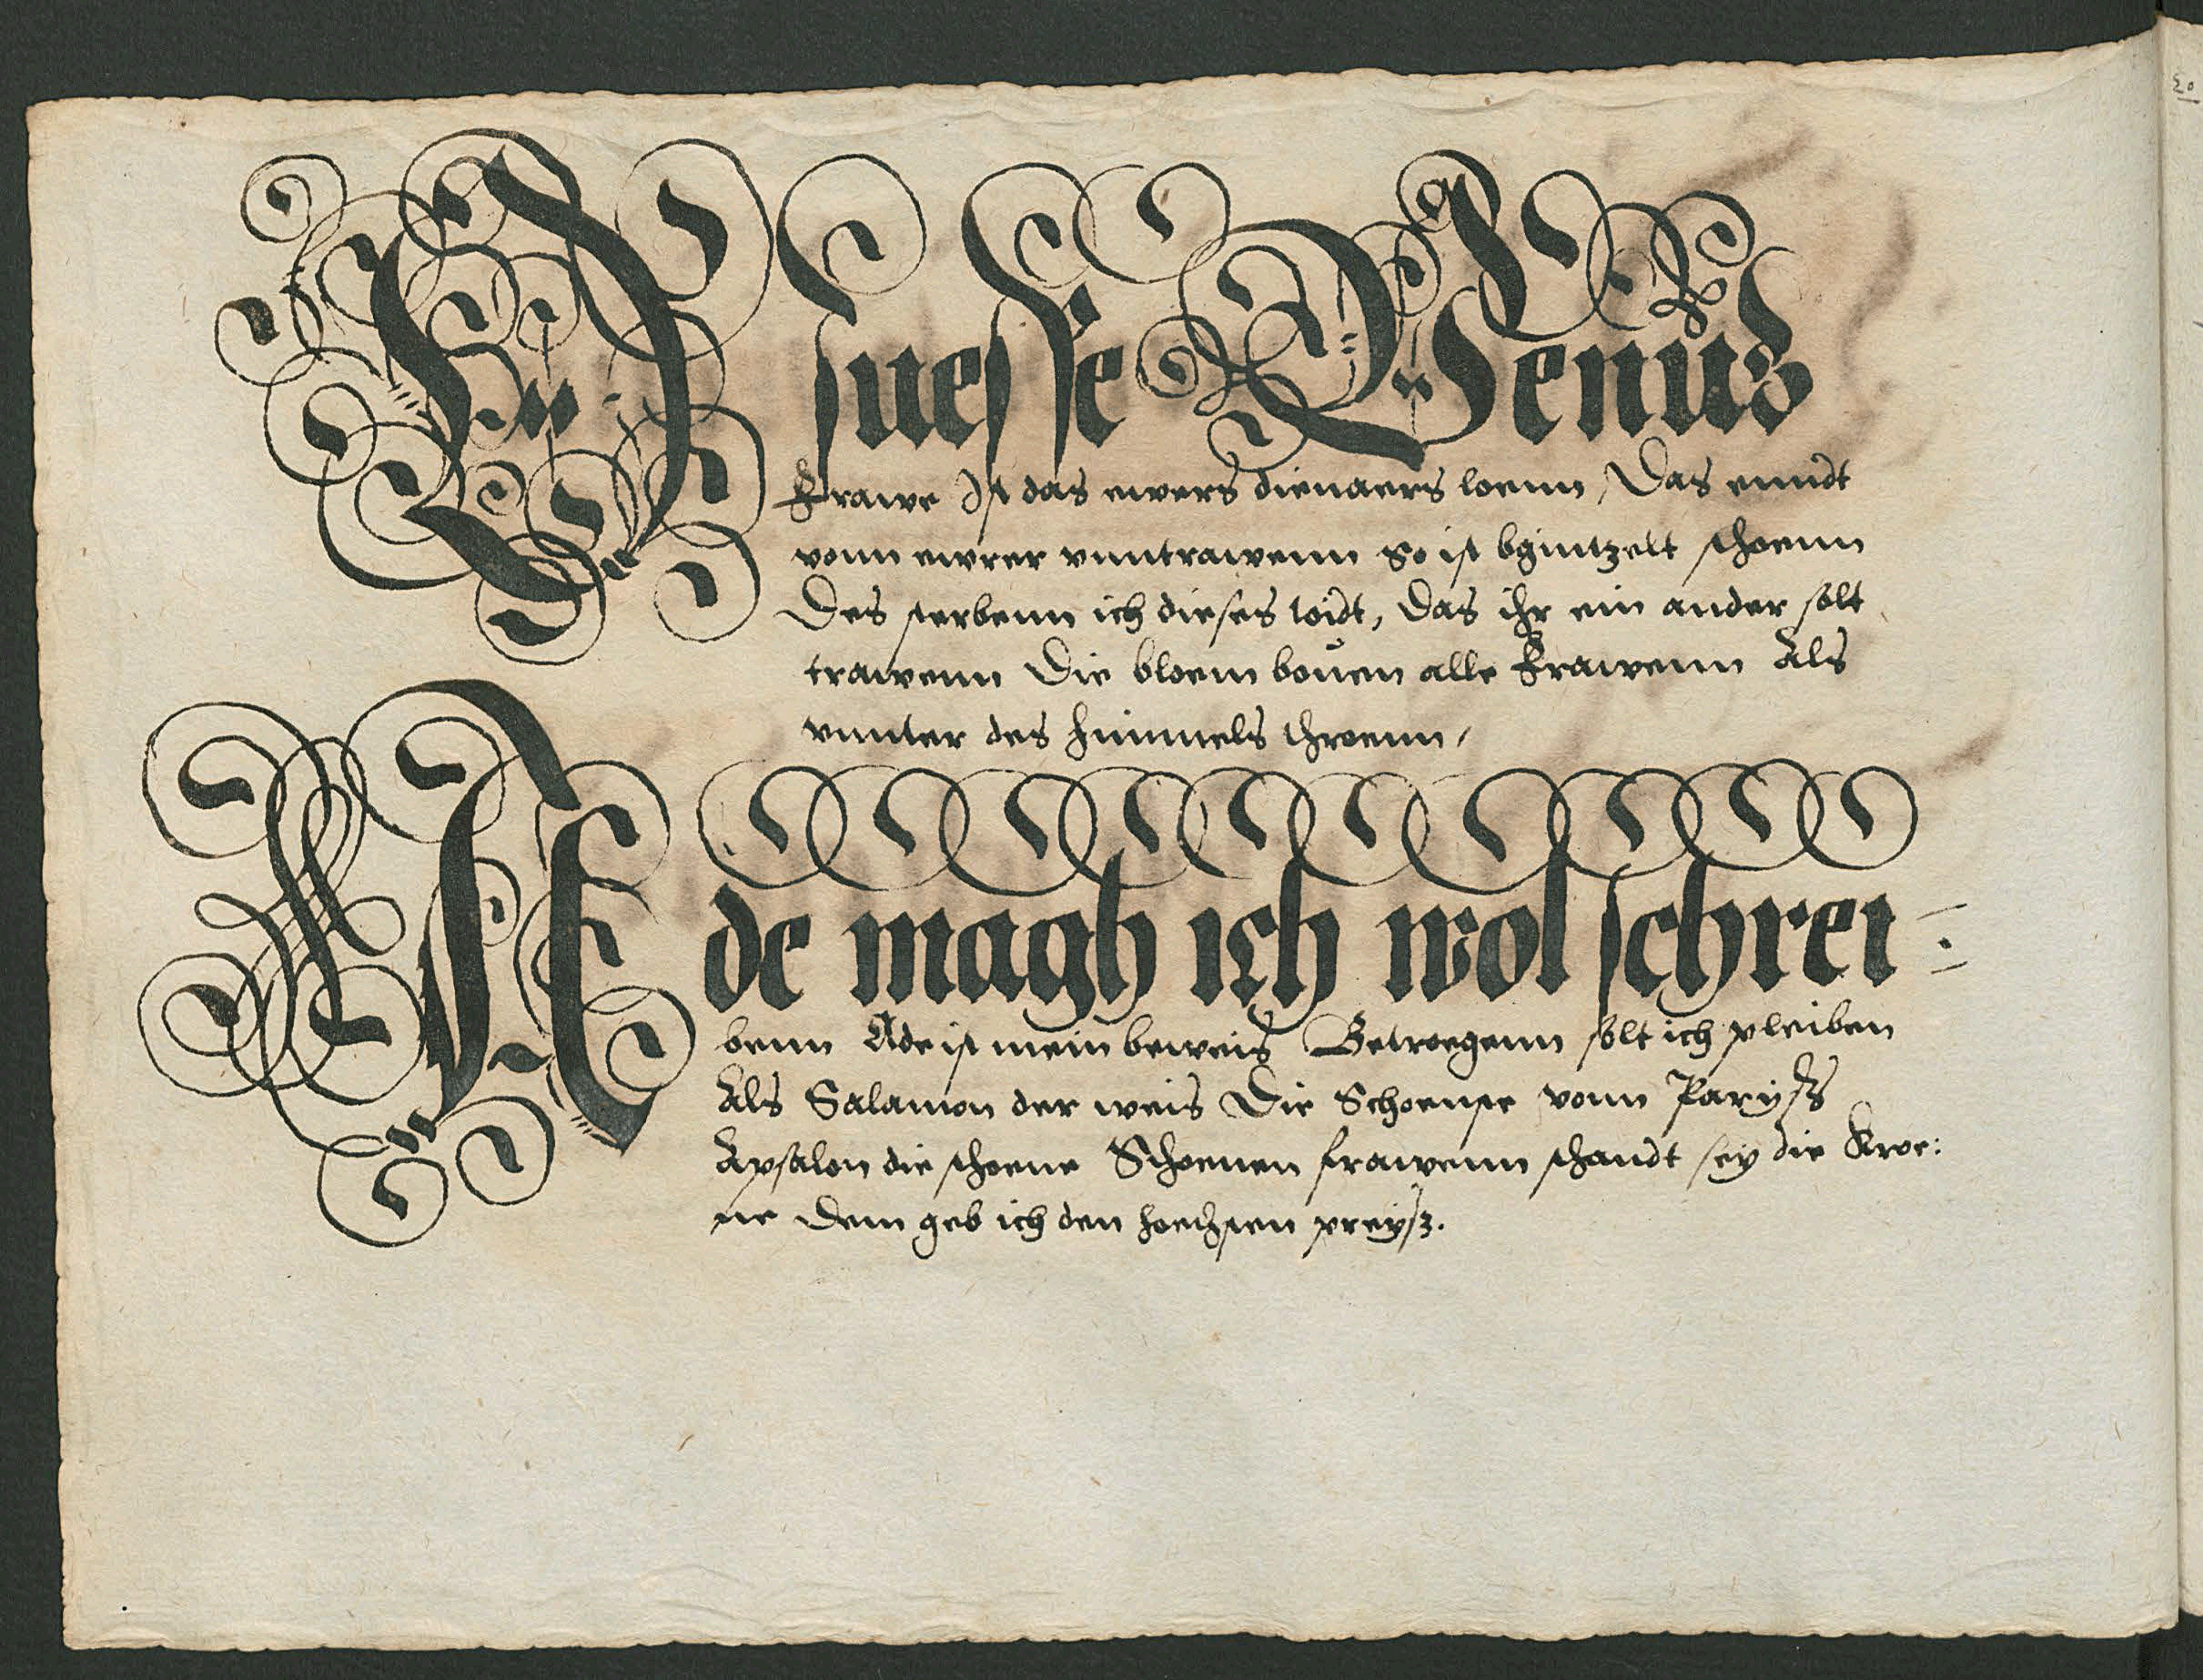 O suesse Venus
Frawe Ist das ewers dienaers loenn, Das enndt
vonn ewrer vnntrawenn So ist schoenn
Des sterbenn ich dieses loidt, Das ihr ein ander solt
trawenn Die bloem bouen alle Frawenn Als
vnnter des himmels throenn,
Ade magh ich wol schrei:
benn Ade ist mein beweis Betroegenn solt ich pleiben
Als Salamon der weis Die Schoenste vonn Paryss
Apsalon die schoene Schoenen frawenn schandt sey die Kroe:
ne Dem geb ich den hoechsten preysz.